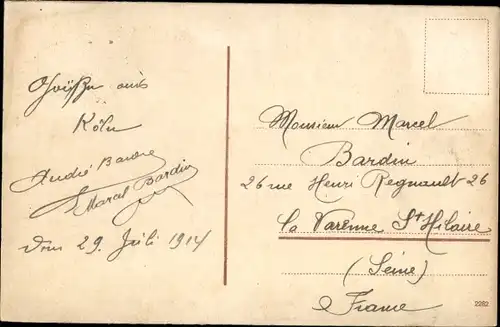 Grüße aus
Köln
André Bardin
Marcel Bardin
Den 29. Juli 1914
Monsieur Marcel
Bardin
26 rue Henri Regnault 26
La Varenne St Hilaire
(Seine)
France
2282